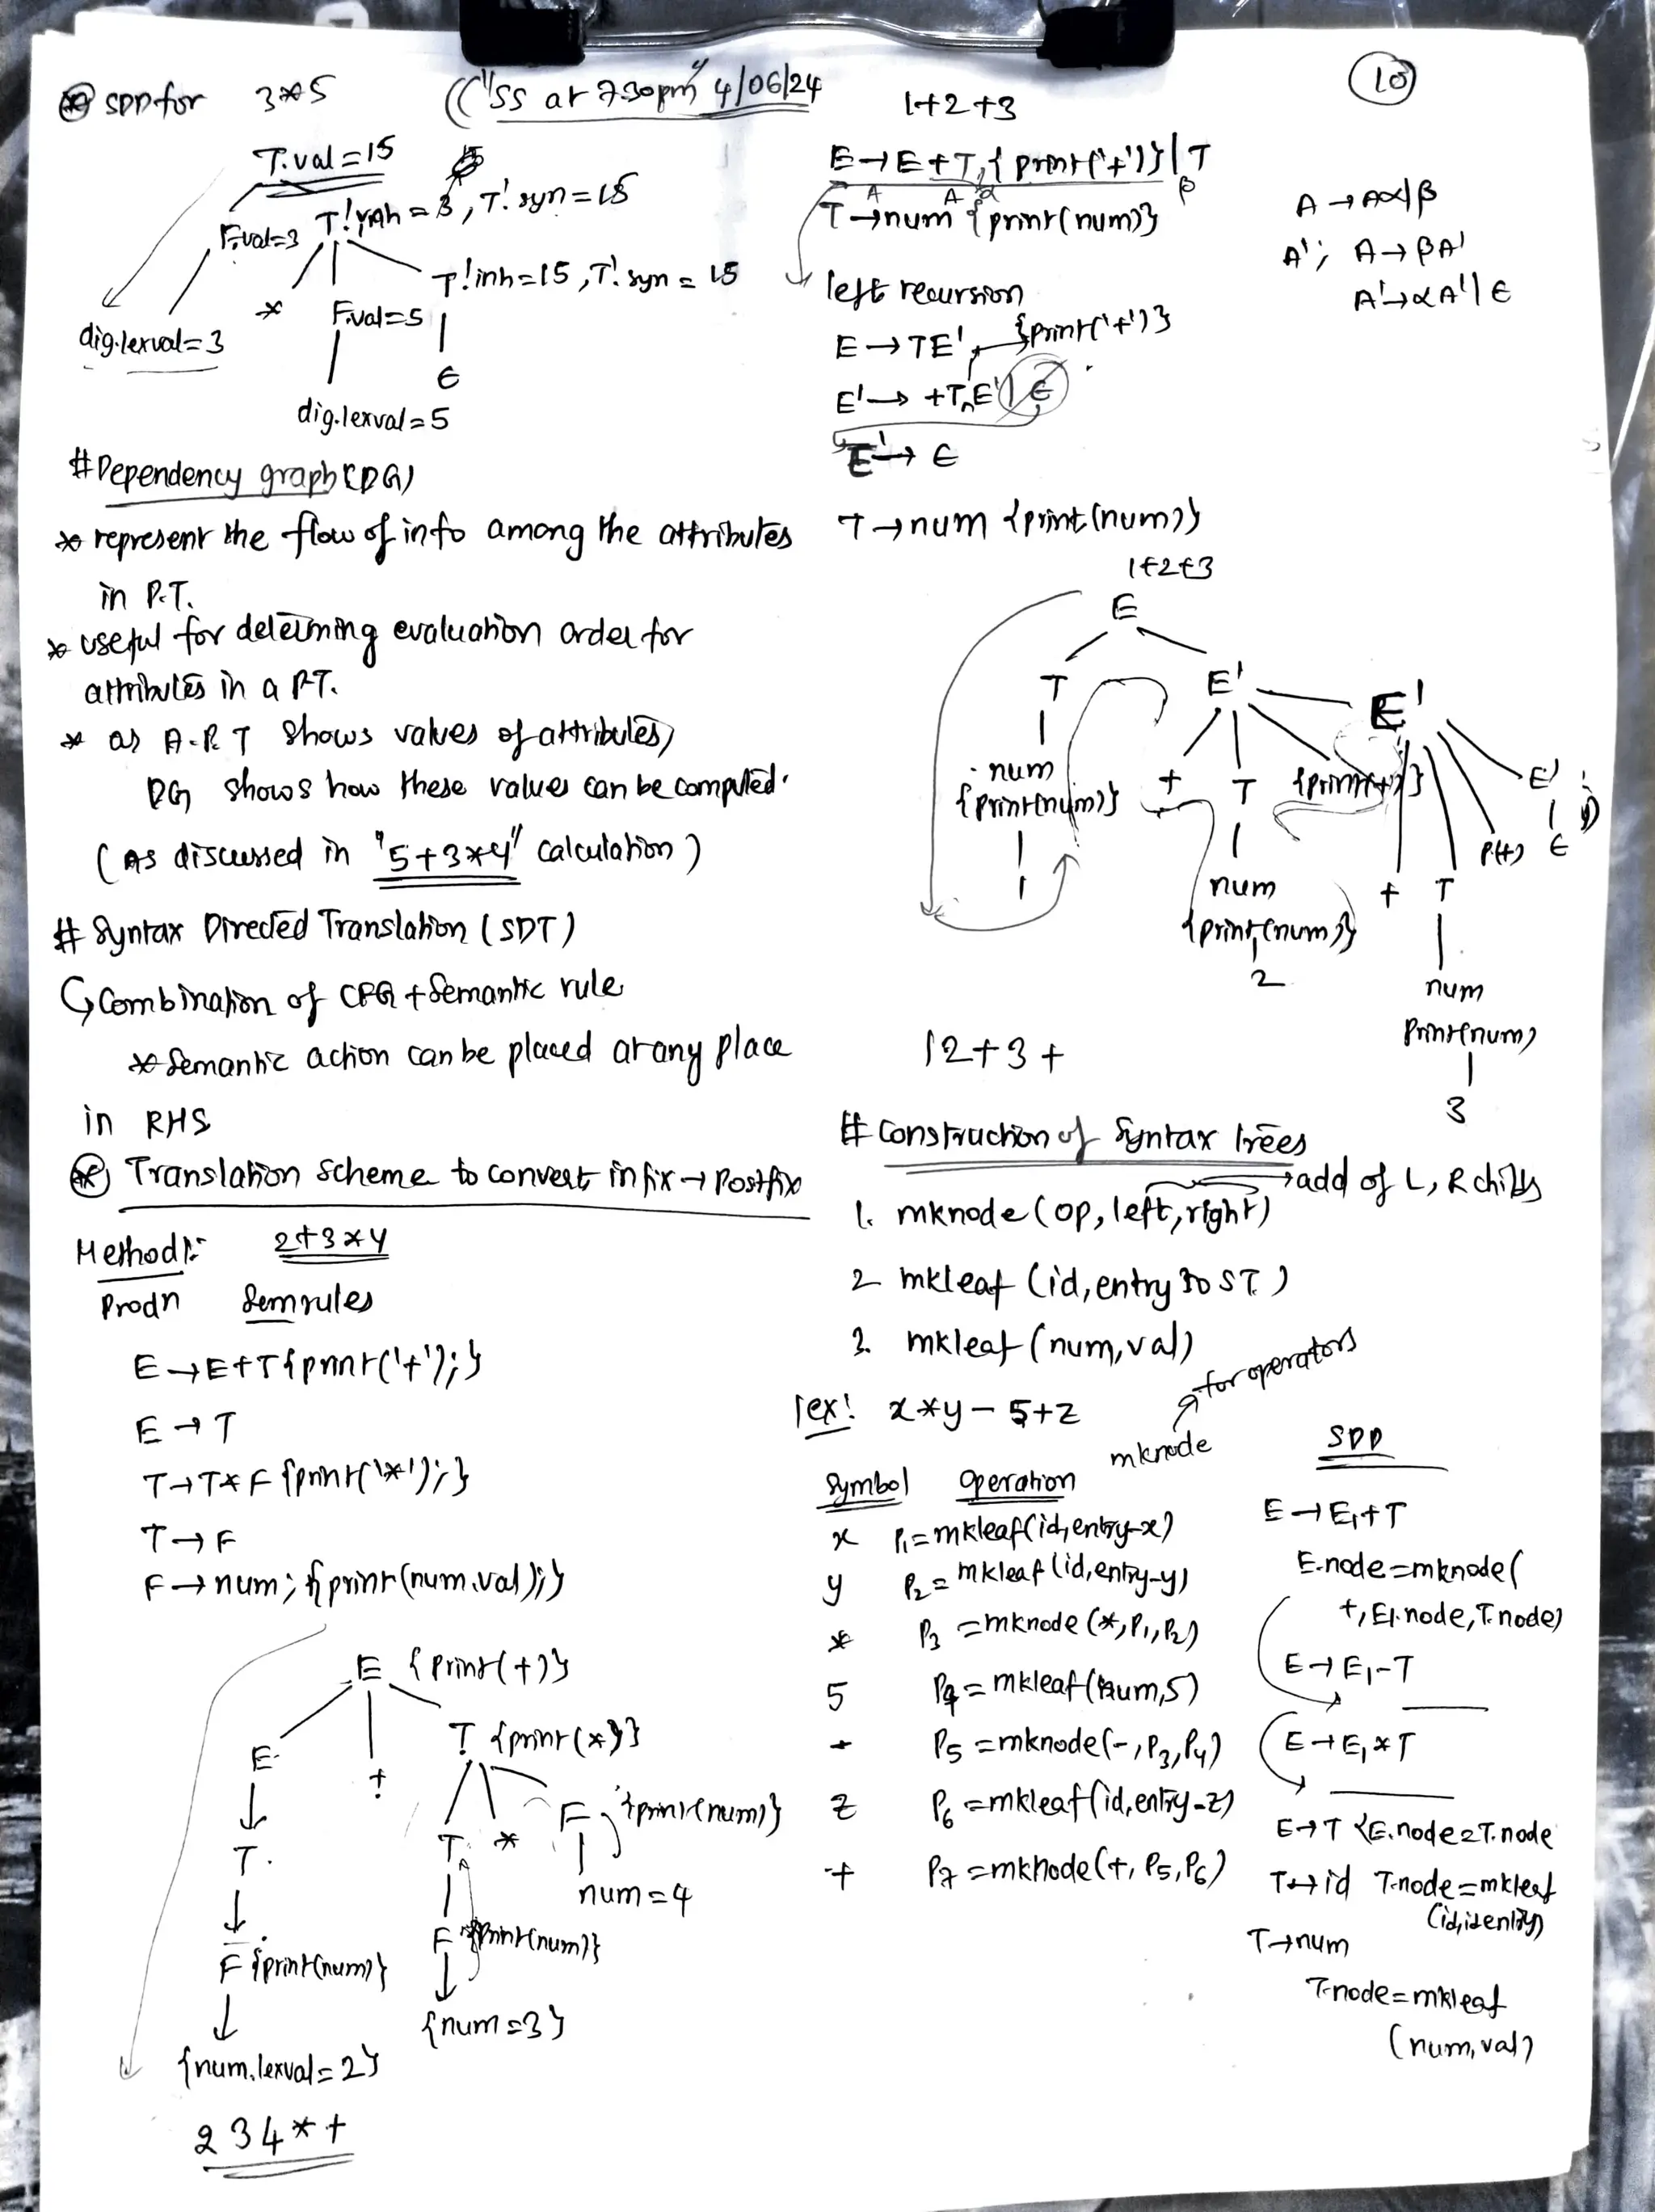 SDD for 3*5
("SS at 7.30pm" 4/06/24
10
T.val=15
F.val=3 T'.inh=3, T'.syn=15
* F.val=5 T'.inh=15, T'.syn=15
dig.lexval=3
ϵ
dig.lexval=5
# Dependency graph (DG)
* represent the flow of info among the attributes
in P.T.
* useful for determing evaluation order for
attributes in a P.T.
* as A.P.T shows values of attributes,
DG shows how these values can be computed.
(As discussed in "5+3*4" calculation)
# Syntax Directed Translation (SDT)
↳ Combination of CFG + Semantic rule
* Semantic action can be placed at any place
in RHS
* Translation scheme to convert infix → Postfix
Method 1: 2+3*4
Prodn Sem rules
E → E+T {print('+');}
E → T
T → T*F {print('*');}
T → F
F → num; {print(num.val);}
E {print(+)}
E + T {print(*)}
T T * F {print(num)}
num=4
F {print(num)} F {print(num)}
{num=3}
{num.lexval=2}
234*+
1+2+3
E → E+T, {print('+')} | T
A A α β
T → num {print(num)}
A → Aα|β
A'; A → βA'
A' → αA'|ϵ
left recursion
E → TE' {print('+')}
E' → +T E' | ϵ
E' → ϵ
T → num {print(num)}
1+2+3
E
T E' E'
num + T {print(+)} E'
{print(num)} P(+) ϵ
1 num + T
{print(num)}
2 num
print(num)
3
12+3+
# Construction of Syntax trees
add of L, R childs
1. mknode (op, left, right)
2 mkleaf (id, entry to ST)
3. mkleaf (num, val)
for operators
mknode
ex: x*y - 5+z
Symbol Operation
x P1=mkleaf(id,entry-x)
y P2=mkleaf(id,entry-y)
* P3=mknode(*,P1,P2)
5 P4=mkleaf(num,5)
- P5=mknode(-,P3,P4)
z P6=mkleaf(id,entry-z)
+ P7=mknode(+,P5,P6)
SDD
E → E1+T
E.node=mknode(
+,E1.node,T.node)
E → E1-T
E → E1*T
E → T {E.node=T.node
T → id T.node=mkleaf
(id,id.entry)
T → num
T.node=mkleaf
(num,val)